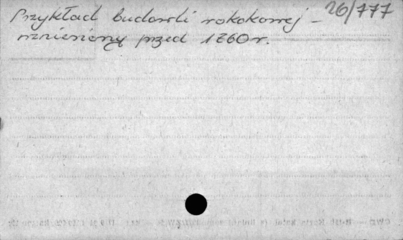 Przykład budowli rokokowej – 26/777
wzniesiony przed 1760 r.